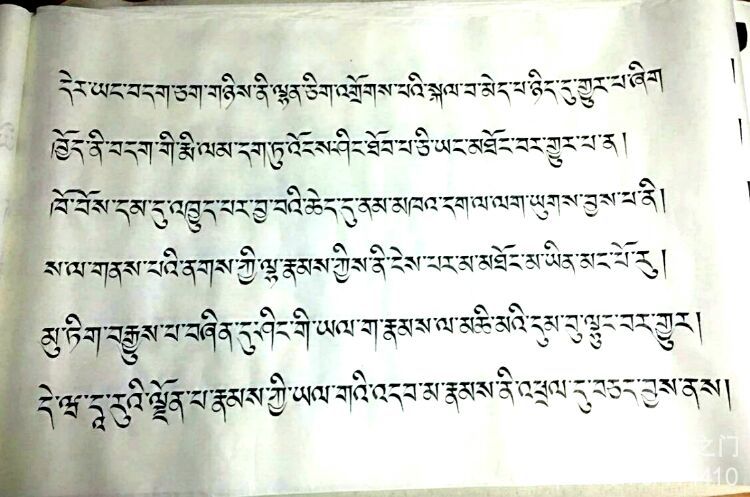 དེར་ཡང་བདག་ཅག་གཉིས་ནི་ལྷན་ཅིག་འགྲོགས་པའི་སྐལ་བ་མེད་པ་ཉིད་དུ་གྱུར་པ་ཞིག
ཁྱོད་ནི་བདག་གི་རྨི་ལམ་དག་ཏུ་འོངས་ཤིང་ཐོབ་པ་ཅི་ཡང་མཐོང་བར་གྱུར་པ་ན།
ཁོ་བོས་དམ་དུ་འཁྱུད་པར་བྱ་བའི་ཆེད་དུ་ནམ་མཁའ་དག་ལ་ལག་ཡུགས་བྱས་པ་ནི།
ས་ལ་གནས་པའི་ནགས་ཀྱི་ལྷ་རྣམས་ཀྱིས་ནི་ངེས་པར་མ་མཐོང་མ་ཡིན་མང་པོ་རུ།
མུ་ཏིག་བརྒྱུས་པ་བཞིན་དུ་ཤིང་གི་ཡལ་ག་རྣམས་ལ་མཆི་མའི་དུམ་བུ་ལྷུང་བར་གྱུར།
དེ་ཝ་དཱ་རུའི་ལྗོན་པ་རྣམས་ཀྱི་ཡལ་གའི་འདབ་མ་རྣམས་ནི་འཕྲལ་དུ་བཅད་བྱས་ནས།
之门
410